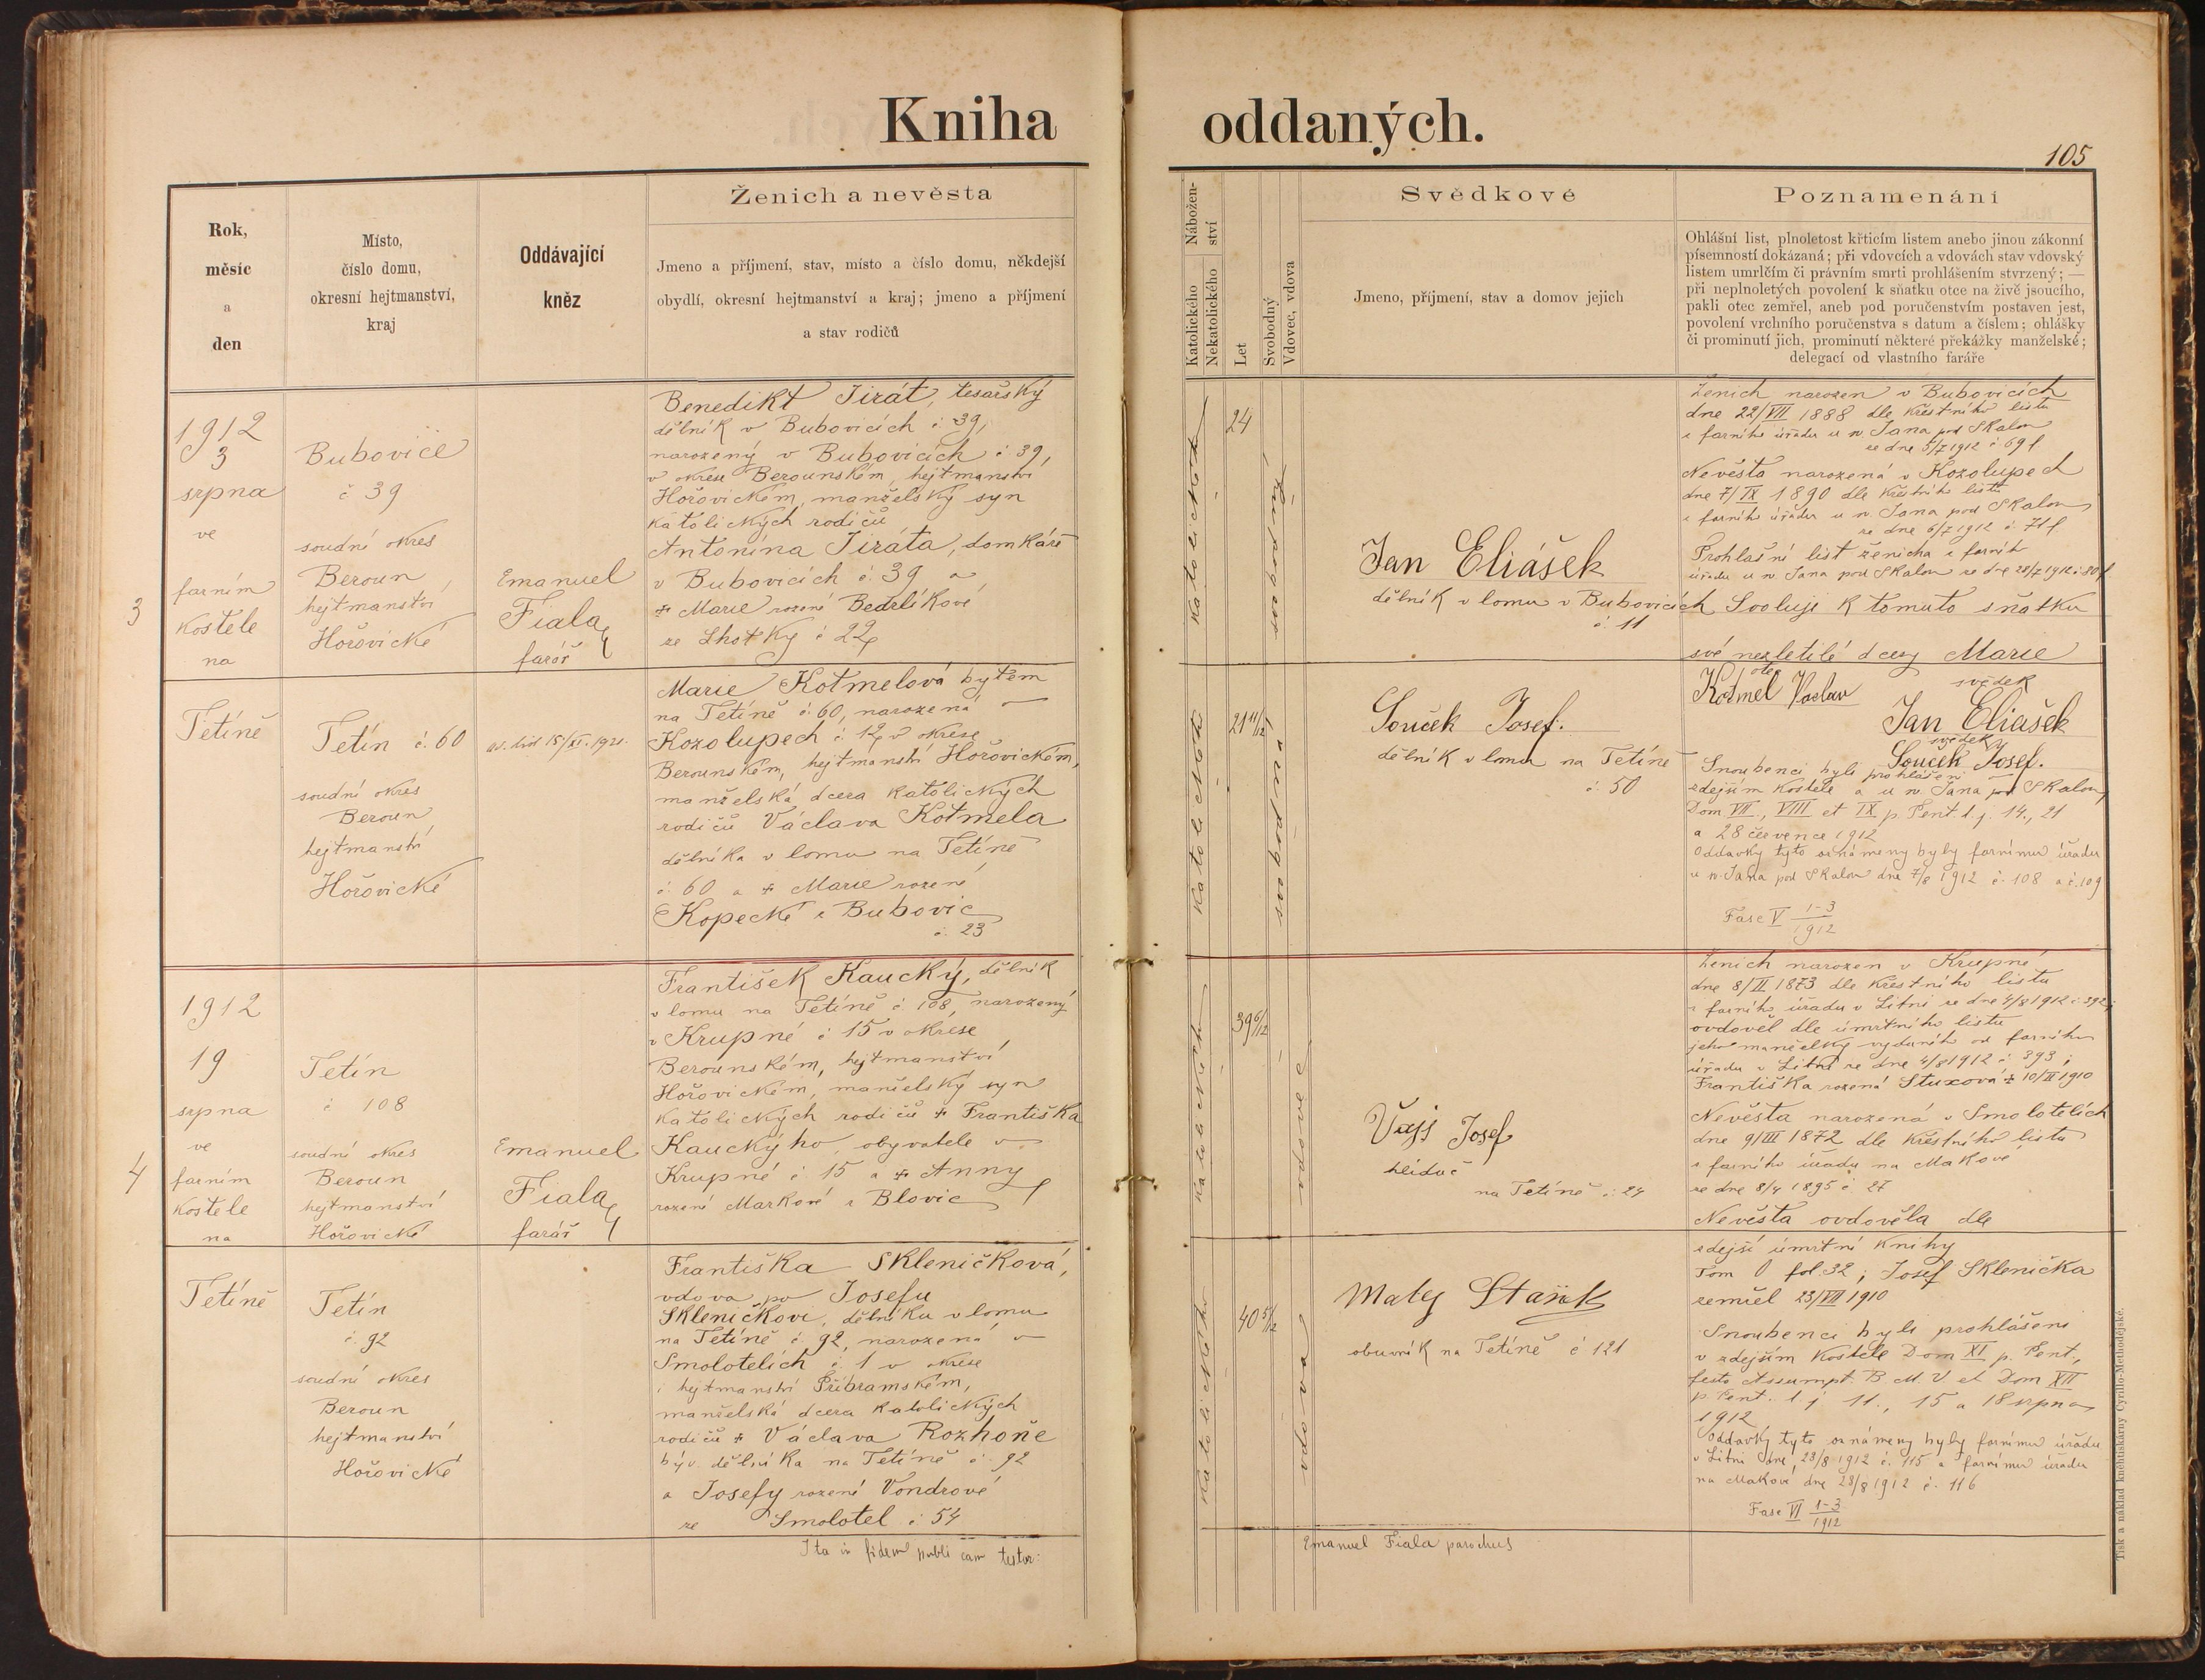 Kniha oddaných.
105
Rok,
měsíc
a
den
Místo,
číslo domu,
okresní hejtmanství,
kraj
Oddávající
kněz
Ženich a nevěsta
Jmeno a příjmení, stav, místo a číslo domu, někdejší
obydlí, okresní hejtmanství a kraj; jmeno a příjmení
a stav rodičů
Nábožen-
ství
Katolického
Nekatolického
Let
Svobodný
Vdovec, vdova
Svědkové
Jmeno, příjmení, stav a domov jejich
Poznamenání
Ohlášní list, plnoletost křticím listem anebo jinou zákonní
písemností dokázaná; při vdovcích a vdovách stav vdovský
listem umrlčím či právním smrti prohlášením stvrzený; —
při neplnoletých povolení k sňatku otce na živě jsoucího,
pakli otec zemřel, aneb pod poručenstvím postaven jest,
povolení vrchního poručenstva s datum a číslem; ohlášky
či prominutí jich, prominutí některé překážky manželské;
delegací od vlastního faráře
3
1912
3
srpna
ve
farním
kostele
na
Tetíně
Bubovice
č 39
soudní okres
Beroun,
hejtmanství
Hořovické
Emanuel
Fiala
farář
Benedikt Jirát, tesařský
dělník v Bubovicích č. 39,
narozený v Bubovicích č. 39,
v okrese Berounském, hejtmanství
Hořovickém, manželský syn
katolických rodičů
Antonína Jiráta, domkáře
v Bubovicích č. 39 a
+ Marie rozené Bedrlíkové
ze Lhotky č 22
katolického
24
svobodný
Jan Eliášek
dělník v lomu v Bubovicích
č. 11
Ženich narozen v Bubovicích
dne 22/VII 1888 dle křestního listu
z farního úřadu u sv. Jana pod Skalou
ze dne 5/7 1912 č 69 f
Nevěsta narozená v Kozolupech
dne 7/IX 1890 dle křestního listu
z farního úřadu u sv. Jana pod Skalou
ze dne 6/7 1912 č 71 f
Prohlašní list ženicha z farního
úřadu u sv. Jana pod Skalou ze dne 28/7 1912 č. 80 f
Svoluji k tomuto sňatku
své nezletilé dcery Marie
Tetín č. 60
soudní okres
Beroun
hejtmanství
Hořovické
Marie Kotmelová bytem
na Tetíně č. 60, narozená v
Kozolupech č 12 v okrese
Berounském, hejtmanství Hořovickém,
manželská dcera katolických
rodičů Václava Kotmela
dělníka v lomu na Tetíně
č. 60 a + Marie rozené
Kopecké z Bubovic
č. 23
katolického
21 11/12
svobodná
Souček Josef.
dělník v lomu na Tetíně
č. 50
otec
Kotmel Vaclav
svědek
Jan Eliašek
svědek
Souček Josef.
Snoubenci byli prohlášeni v
zdejším kostele a u sv. Jana pod Skalou
Dom VII., VIII et IX p. Pent. t. j. 14., 21
a 28 července 1912
Oddavky tyto oznámeny byly farnímu úřadu
u sv. Jana pod Skalou dne 7/8 1912 č. 108 a č. 109
Fasc V 1-3
1912
4
1912
19
srpna
ve
farním
kostele
na
Tetíně
Tetín
č 108
soudní okres
Beroun
hejtmanství
Hořovické
Emanuel
Fiala
farář
František Kaucký, dělník
v lomu na Tetíně č 108, narozený
v Krupné č 15 v okrese
Berounském, hejtmanství
Hořovickém, manželský syn
katolických rodičů + Františka
Kauckýho, obyvatele v
Krupné č 15 a + Anny
rozené Markové z Blovic
katolického
39 6/12
vdovec
Vajs Josef
hlídač
na Tetíně č. 24
Ženich narozen v Krupné
dne 8/II 1873 dle křestního listu
z farního úřadu v Litni ze dne 4/8 1912 č. 392;
ovdověl dle úmrtního listu
jeho manželky vydaného od farního
úřadu v Litni ze dne 4/8 1912 č 393;
Františka rozená Stuxová + 10/II 1910
Nevěsta narozená v Smolotelích
dne 9/III 1872 dle křestního listu
z farního úřadu na Makové
ze dne 8/4 1895 č 27
Nevěsta ovdověla dle
zdejší úmrtní knihy
Tom O fol. 32; Josef Sklenička
zemřel 23/VII 1910
Tetín
č. 92
soudní okres
Beroun
hejtmanství
Hořovické
Františka Skleničková,
vdova po Josefu
Skleničkovi, dělníku v lomu
na Tetíně č. 92, narozená v
Smolotelích č. 1 v okrese
i hejtmanství Příbramském,
manželská dcera katolických
rodičů + Václava Rozhoně
býv. dělníka na Tetíně č. 92
a Josefy rozené Vondrové
ze Smolotel č. 54
katolického
40 5/12
vdova
Maley
obuvník na Tetíně č 121
Snoubenci byli prohlášeni
v zdejším kostele Dom XI p. Pent.,
festo Assumpt. B. M. V et Dom XII
p. Pent. t. j 11., 15 a 18 srpna
1912
Oddavky tyto oznámeny byly farnímu úřadu
v Litni dne 23/8 1912 č. 115 a farnímu úřadu
na Makové dne 23/8 1912 č. 116
Fasc VI 1-3
1912
Ita in fidem publicam testor:
Emanuel Fiala parochus
Tisk a náklad knihtiskárny Cyrillo-Methodějské.